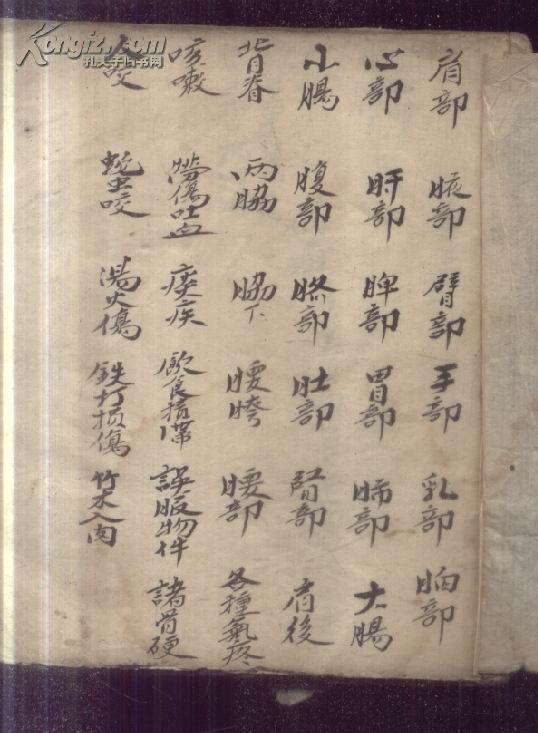 肩部 腋部 臂部 手部 乳部 胸部
心部 肝部 脾部 胃部 肺部 大腸
小腸 腹部 胳部 肚部 腎部 肩後
背脊 两脇 脇下 腰胯 腰部 各種氣疼
咳嗽 勞傷吐血 痰疾 飲食積滯 誤服物件 諸骨硬
咬 蛇虫咬 湯火傷 鉄打損傷 竹木入肉
Kongfz.com
孔夫子旧书网